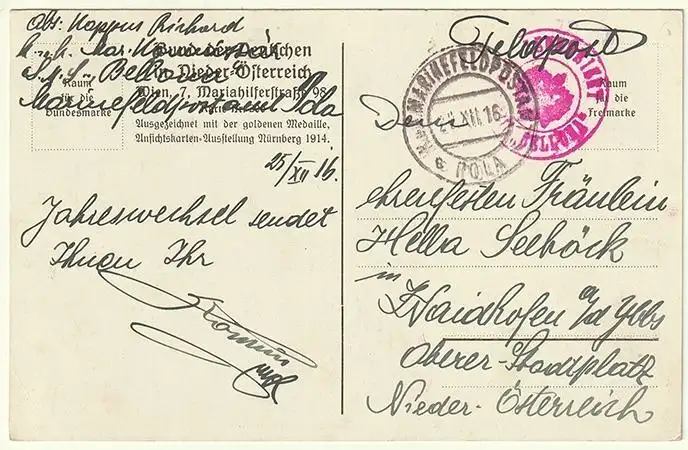 Abs: Kappus Richard
k.u.k. Mar.
Bund der Deutschen
S.M.S.
in Nieder-Österreich
Wien, 7. Mariahilferstraße 98
Marinefeldpostamt Pola
Raum
für die
Bundesmarke
Ausgezeichnet mit der goldenen Medaille,
Ansichtskarten-Ausstellung Nürnberg 1914.
25/XII 16.
Jahreswechsel sendet
Ihnen Ihr
Feldpost
MARINEFELDPOSTAMT
XII 16
POLA
Raum
für die
Freimarke
Dem
ehrenfesten Fräulein
Hella Seeböck
in
Waidhofen a/d Ybbs
Oberer-Stadtplatz
Nieder-Österreich